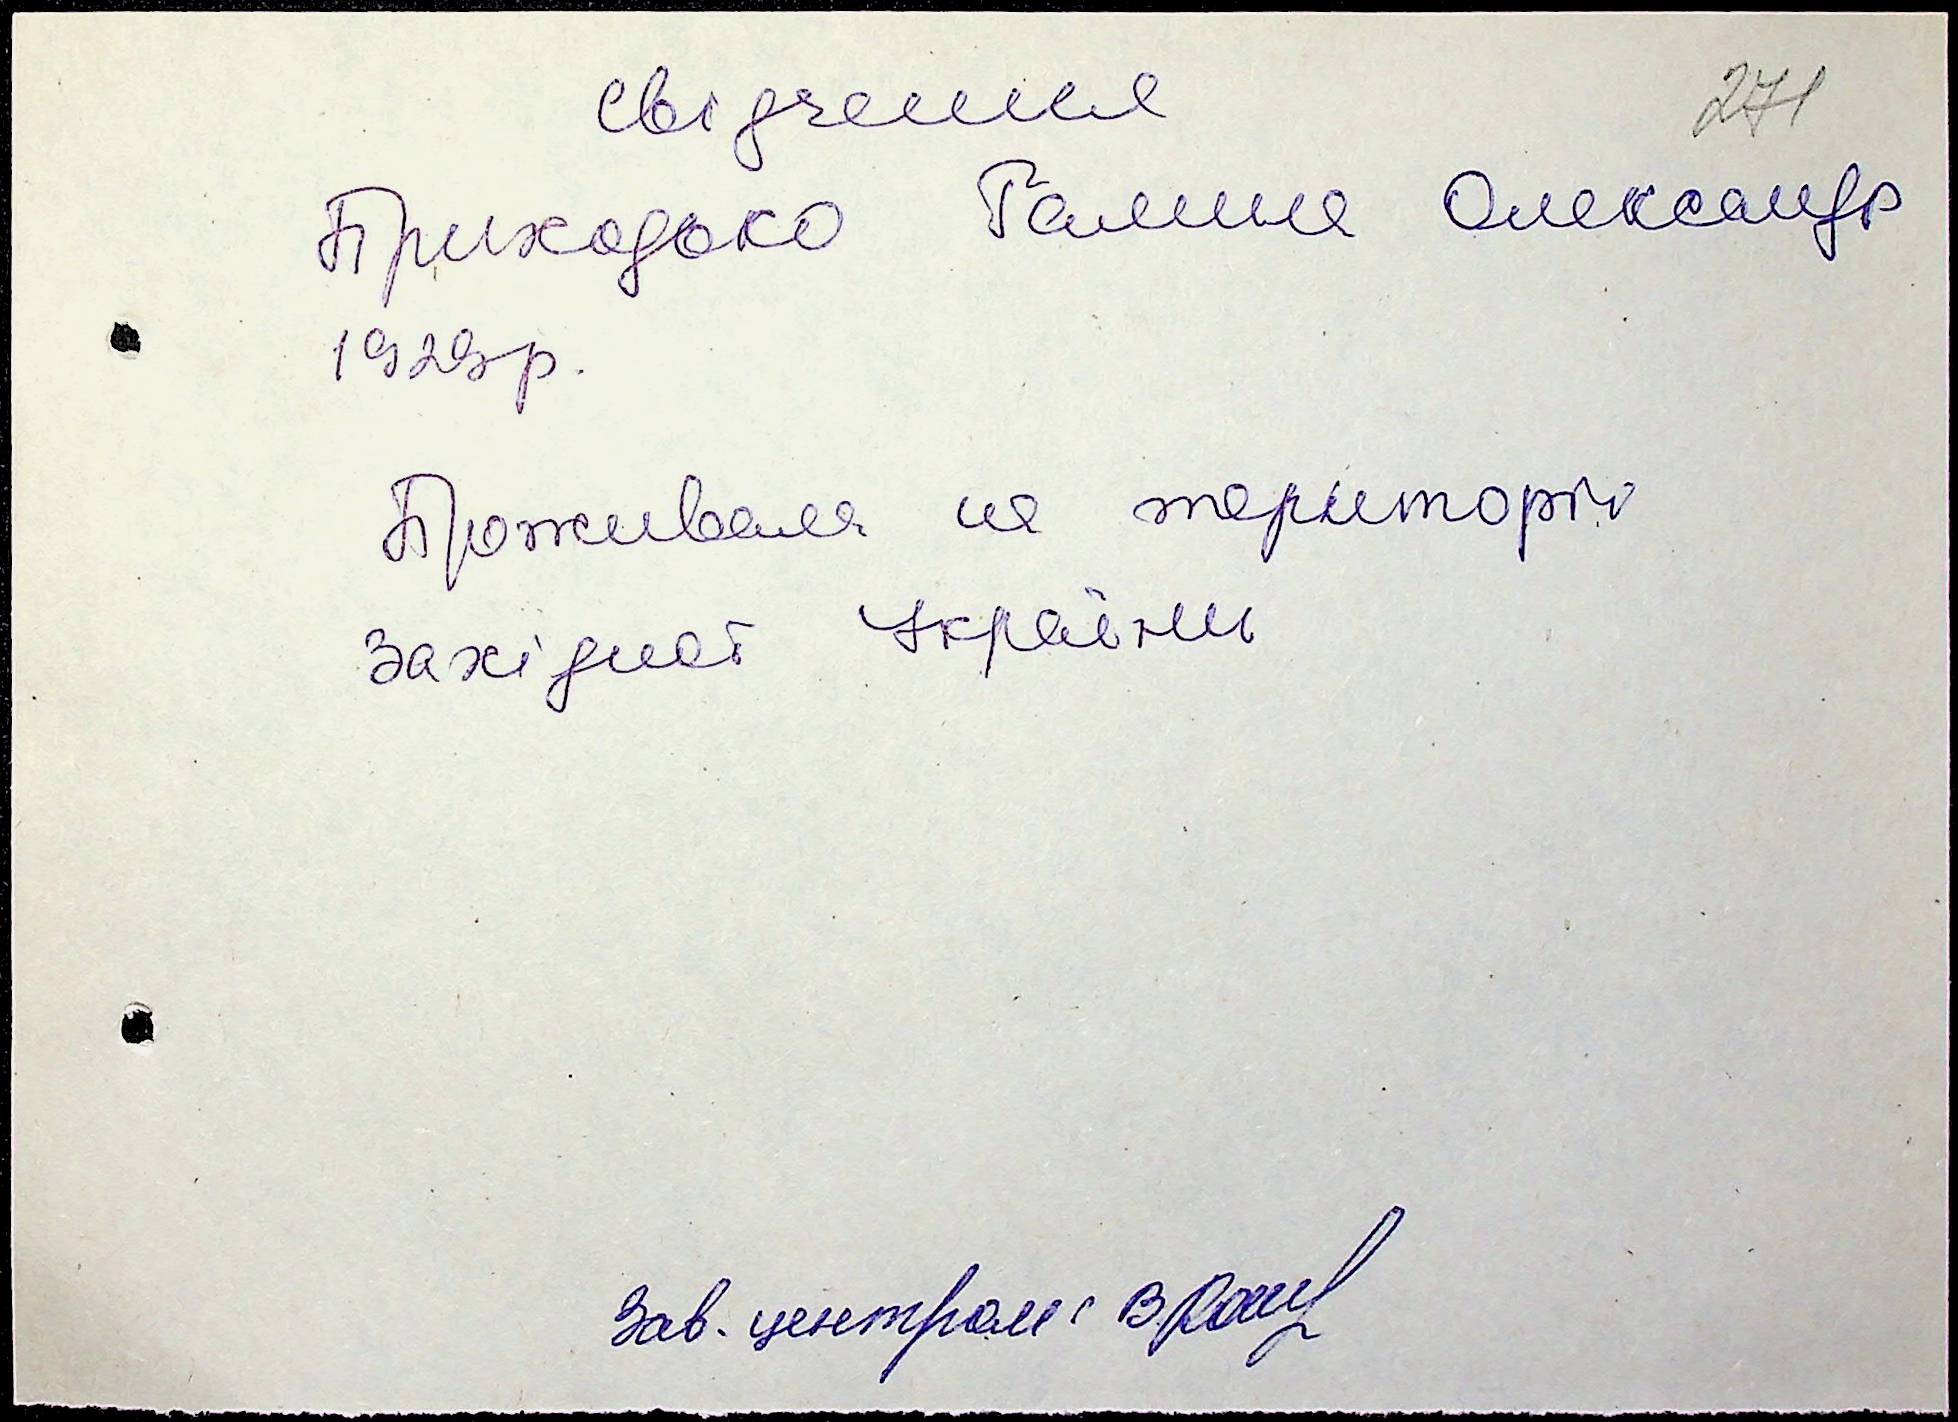 свідчення
271
Приходько Галина Олександр
1929р.
Проживала на території
Західної України
Зав. центром: В.